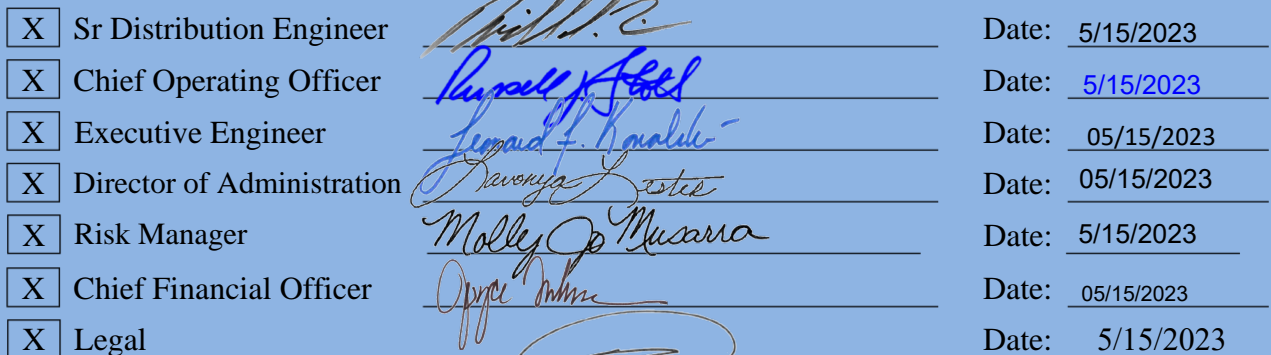 X Sr Distribution Engineer Date: 5/15/2023
X Chief Operating Officer Russell Date: 5/15/2023
X Executive Engineer Leonard F. Kowalski Date: 05/15/2023
X Director of Administration Lavonya Lester Date: 05/15/2023
X Risk Manager Molly Jo Musarra Date: 5/15/2023
X Chief Financial Officer Joyce Date: 05/15/2023
X Legal Date: 5/15/2023